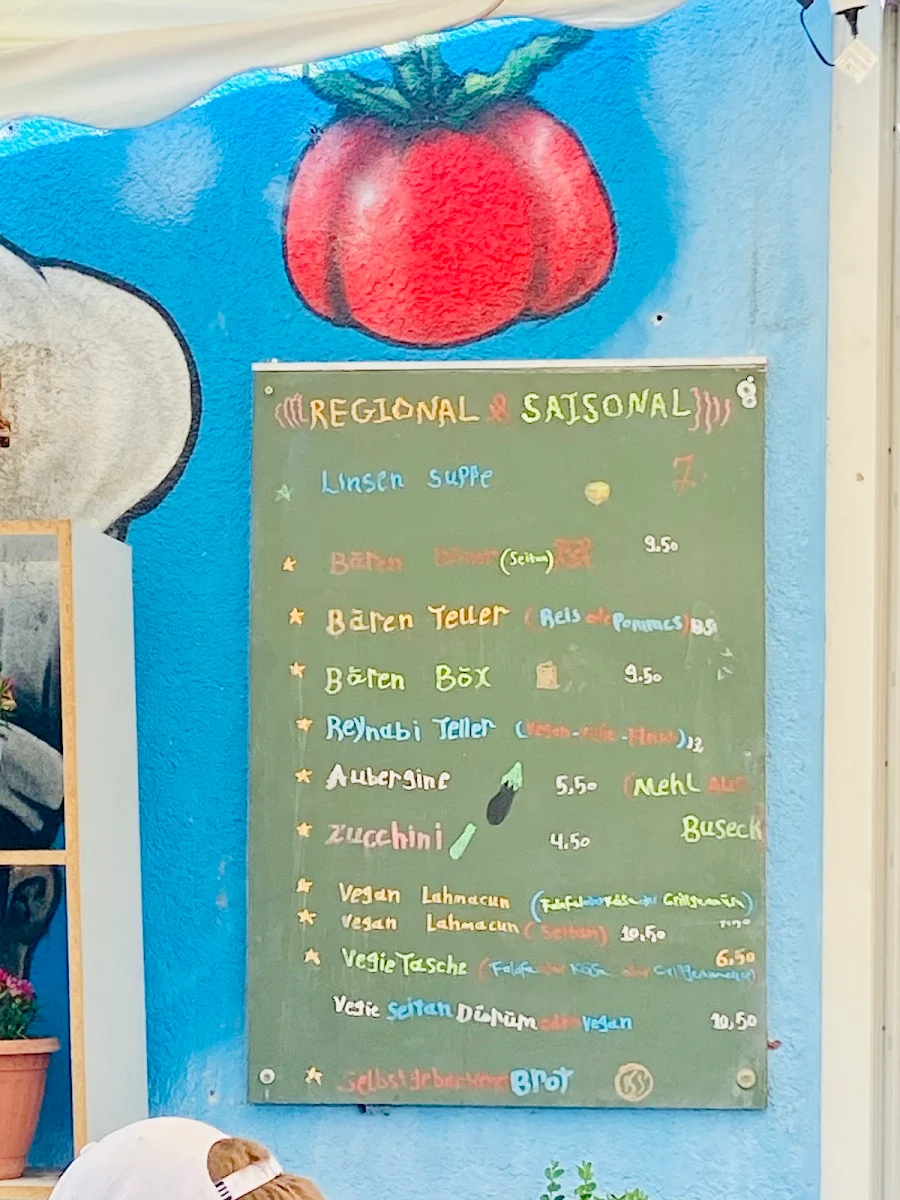 REGIONAL & SAISONAL
Linsen suppe 7
Bären (Seitan) 9.50
Bären Teller (Reis oder Pommes)
Bären Böx 9.50
Reyhabi Teller
Aubergine 5,50 (Mehl AUS
Zucchini 4.50 Buseck
Vegan Lahmacun
Vegan Lahmacun (Seitan) 10,50
6,50
Vegie Tasche
Vegie Seitan Dürüm oder Vegan 10,50
Selbstgebackene Brot